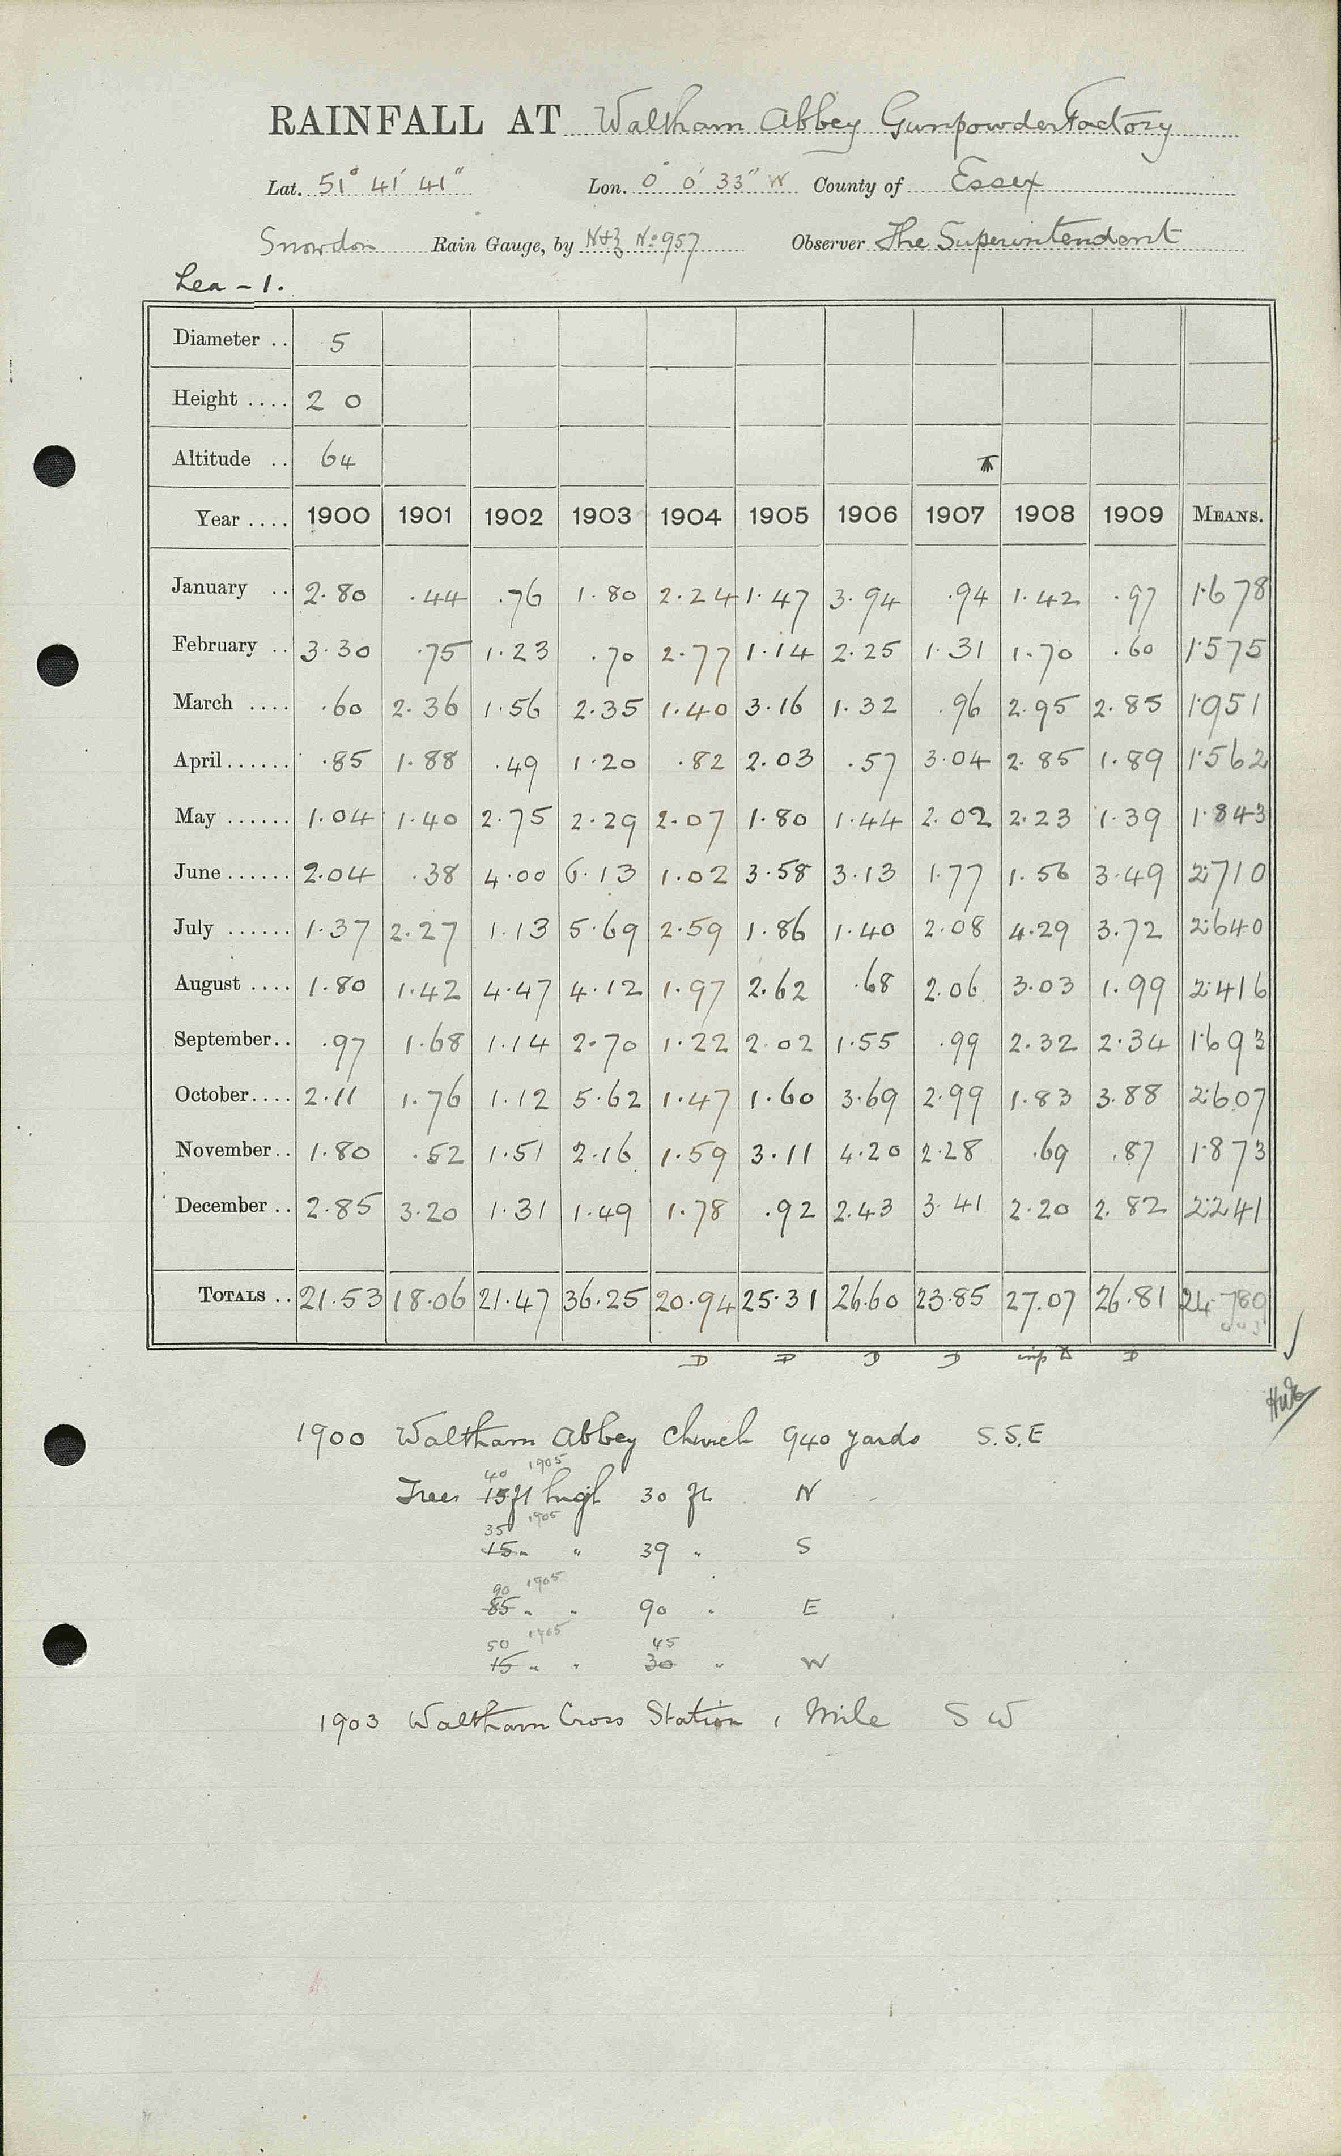 RAINFALL AT Waltham Abbey Gunpowder Factory
Lat. 51° 41' 41" Lon. 0° 0' 33" W County of Essex
Snowdon Rain Gauge, by N&Z No 957 Observer The Superintendent
Lea - 1.
Diameter .. 5
Height .... 2 0
Altitude .. 64
Year .... 1900 1901 1902 1903 1904 1905 1906 1907 1908 1909 MEANS.
January .. 2.80 .44 .76 1.80 2.24 1.47 3.94 .94 1.42 .97 1.678
February .. 3.30 .75 1.23 .70 2.77 1.14 2.25 1.31 1.70 .60 1.575
March .... .60 2.36 1.56 2.35 1.40 3.16 1.32 .96 2.95 2.85 1.951
April...... .85 1.88 .49 1.20 .82 2.03 .57 3.04 2.85 1.89 1.562
May ...... 1.04 1.40 2.75 2.29 2.07 1.80 1.44 2.02 2.23 1.39 1.843
June...... 2.04 .38 4.00 6.13 1.02 3.58 3.13 1.77 1.56 3.49 2.710
July ...... 1.37 2.27 1.13 5.69 2.59 1.86 1.40 2.08 4.29 3.72 2.640
August .... 1.80 1.42 4.47 4.12 1.97 2.62 .68 2.06 3.03 1.99 2.416
September.. .97 1.68 1.14 2.70 1.22 2.02 1.55 .99 2.32 2.34 1.693
October.... 2.11 1.76 1.12 5.62 1.47 1.60 3.69 2.99 1.83 3.88 2.607
November.. 1.80 .52 1.51 2.16 1.59 3.11 4.20 2.28 .69 .87 1.873
December .. 2.85 3.20 1.31 1.49 1.78 .92 2.43 3.41 2.20 2.82 2.241
TOTALS .. 21.53 18.06 21.47 36.25 20.94 25.31 26.60 23.85 27.07 26.81 24.780
D D D D D D
1900 Waltham Abbey Church 940 yards S.S.E
40 1905
Trees 15 ft high 30 ft N
35 1905
15 " " 39 " S
90 1905
85 " " 90 " E
50 1905 45
15 " " 30 " W
1903 Waltham Cross Station 1 Mile S W